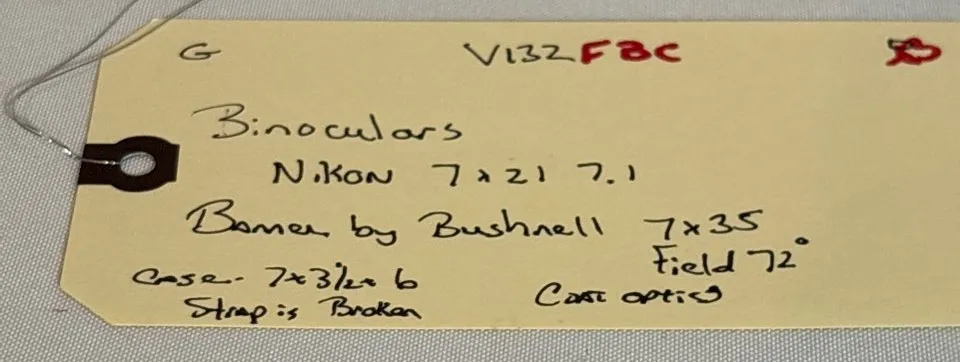 G V132 FBC
Binoculars
Nikon 7x21 7.1
by Bushnell 7x35
Field 72°
Case- 7x3½x6
Strap is Broken
Coat optics